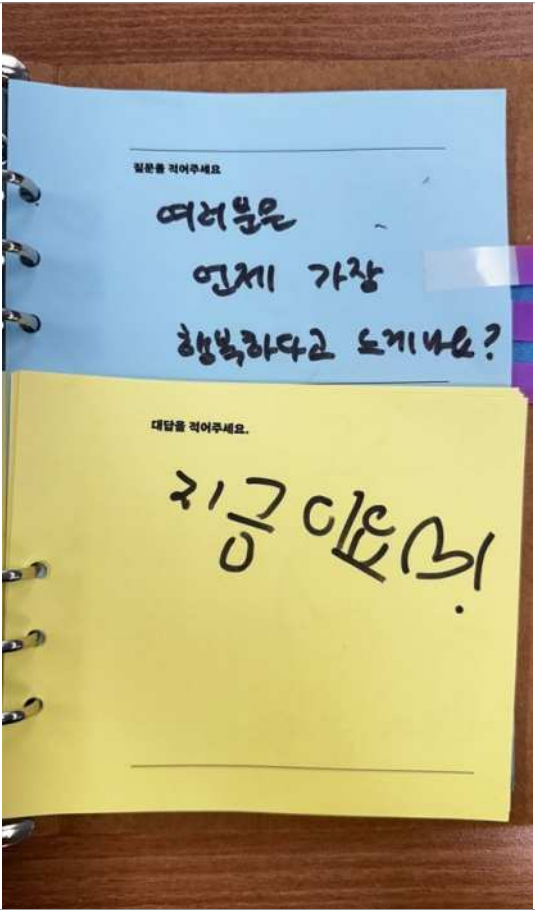 질문을 적어주세요
여러분은
언제 가장
행복하다고 느끼나요?
대답을 적어주세요.
지금이요♡!